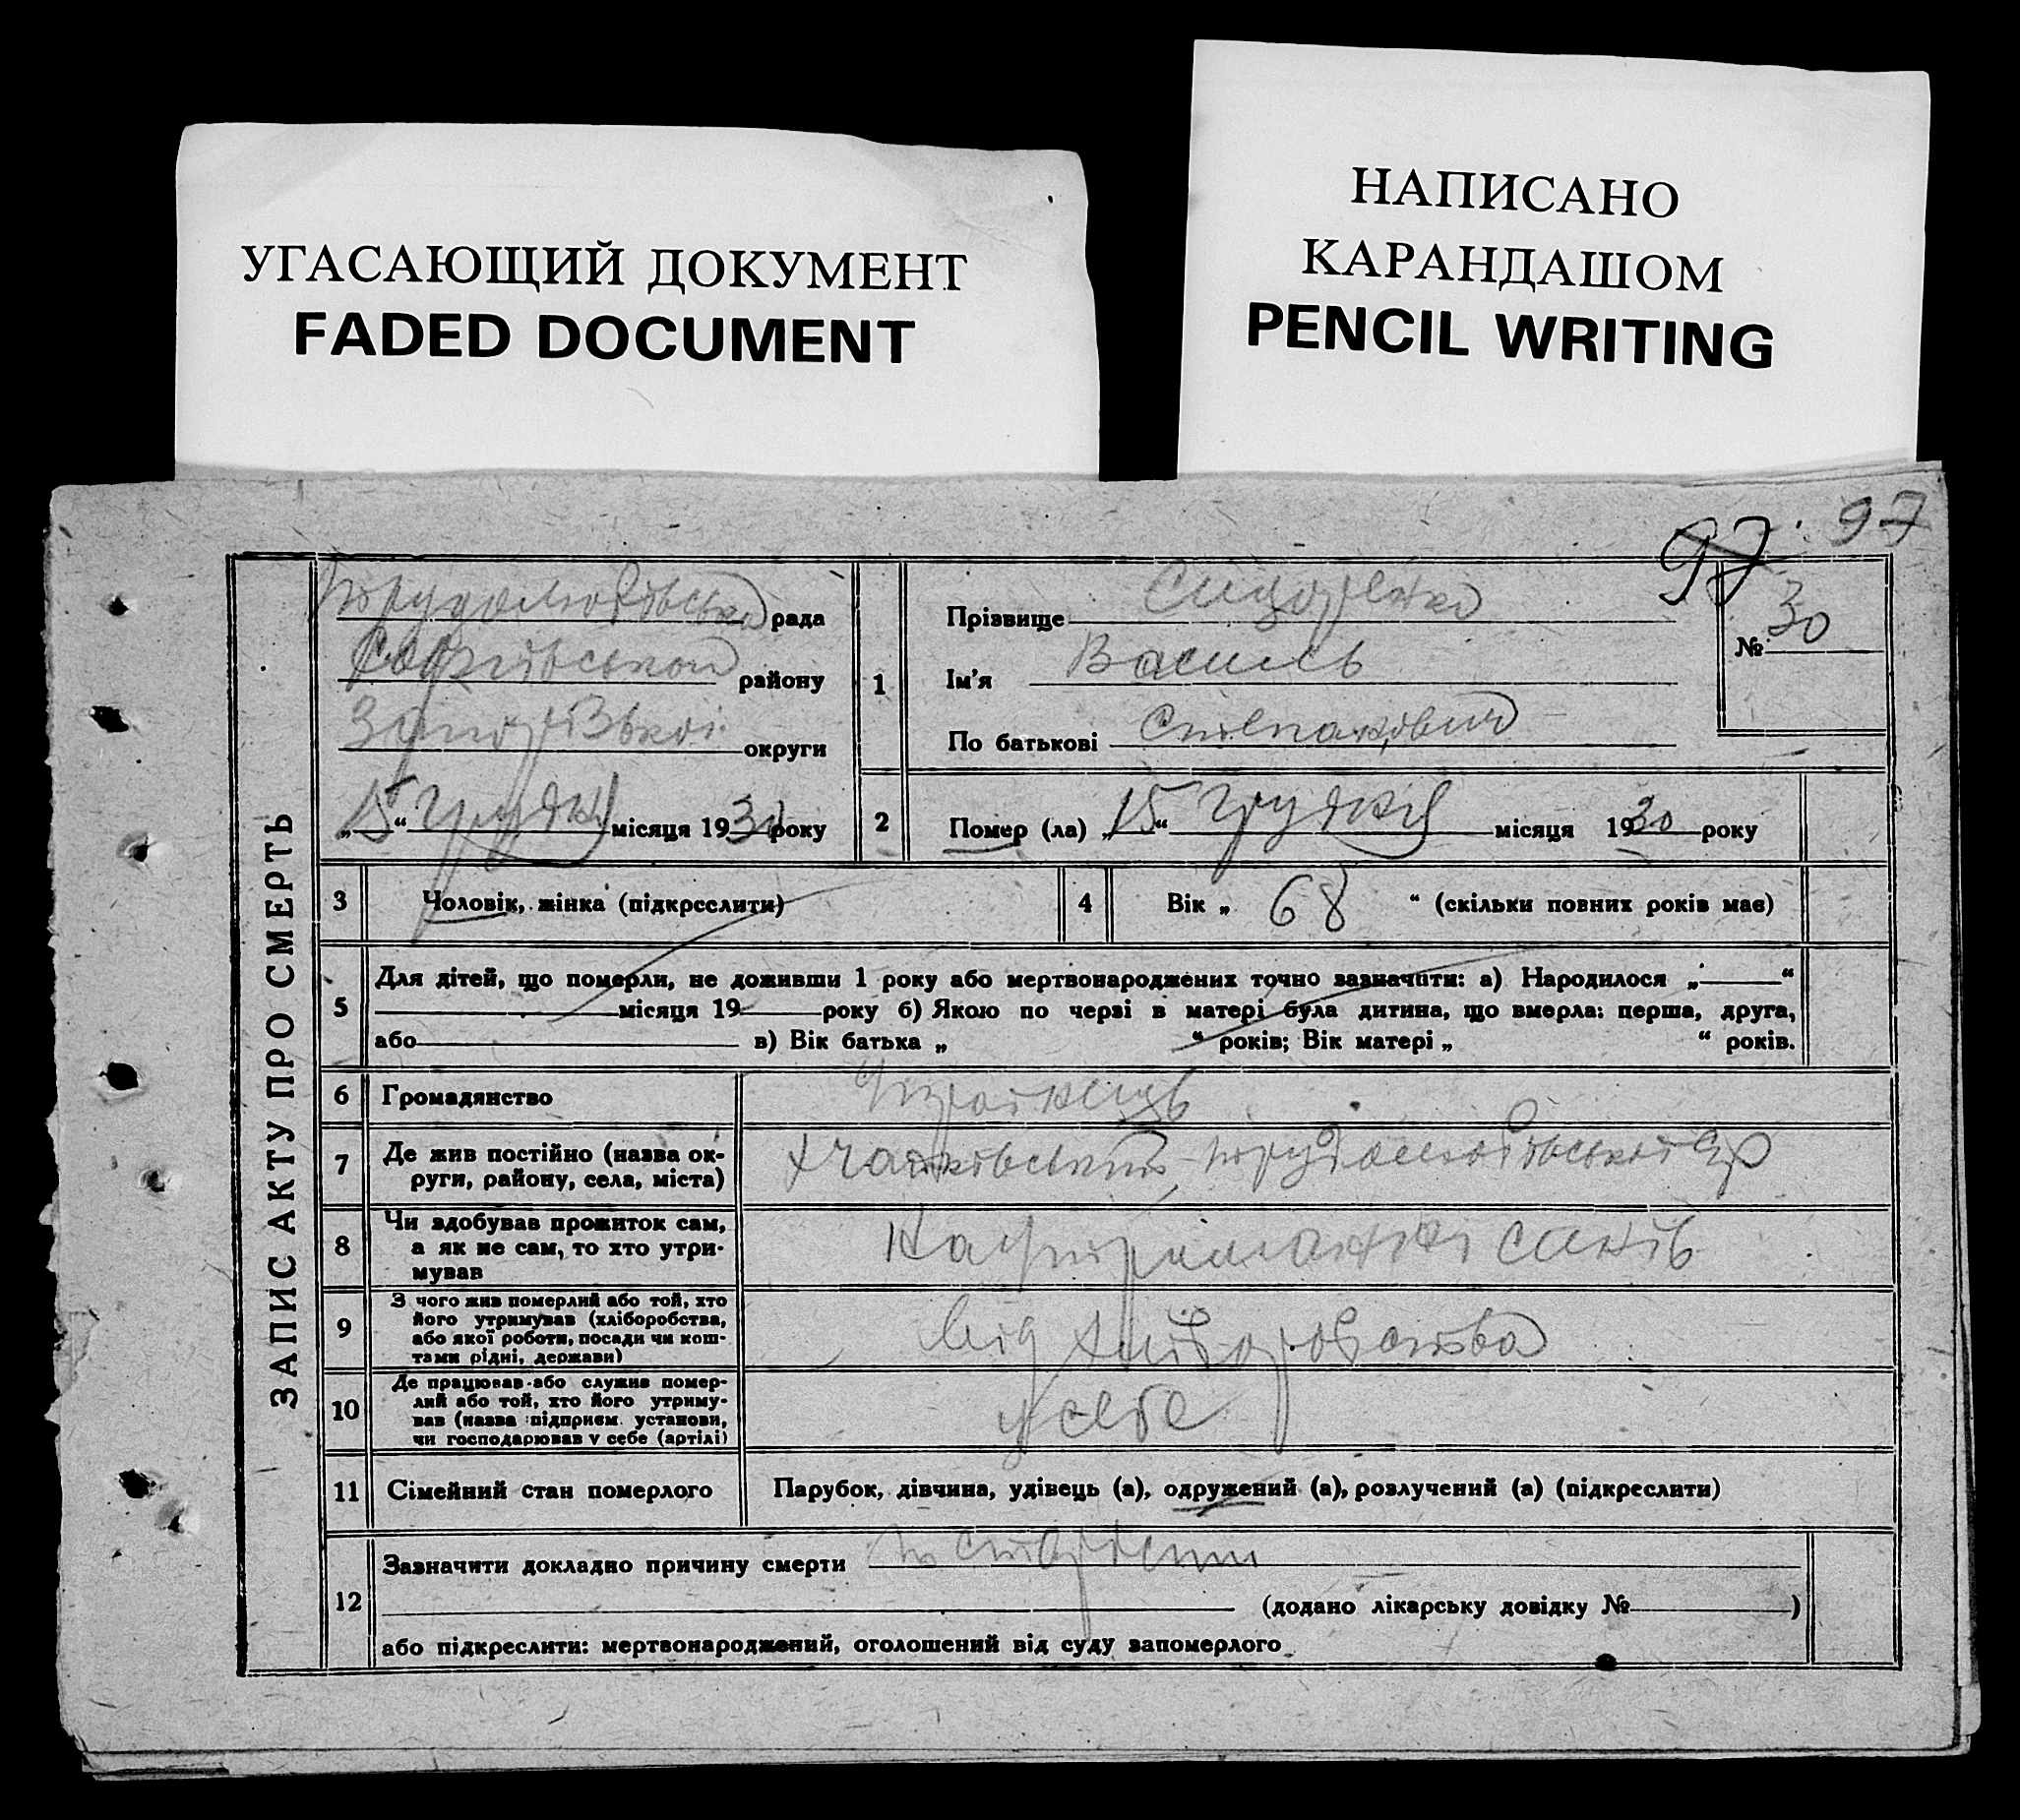 УГАСАЮЩИЙ ДОКУМЕНТ
FADED DOCUMENT
НАПИСАНО
КАРАНДАШОМ
PENCIL WRITING
97 97
ЗАПИС АКТУ ПРО СМЕРТЬ
Трудолюбівська рада
Софіївської району
Запорізької округи
„15“ Грудня місяця 1930 року
1
Прізвище Сидоренко
Ім'я Василь
По батькові Степанович
№ 30
2 Помер (ла) „15“ Грудня місяця 1930 року
3 Чоловік, жінка (підкреслити)
4 Вік „ 68 “ (скільки повних років має)
5 Для дітей, що померли, не доживши 1 року або мертвонароджених точно зазначити: а) Народилося „ “
місяця 19 року б) Якою по черзі в матері була дитина, що вмерла: перша, друга,
або в) Вік батька „ “ років; Вік матері „ “ років.
6 Громадянство Українець
7 Де жив постійно (назва ок-
руги, району, села, міста)
Трудолюбівської с/р
8 Чи здобував прожиток сам,
а як не сам, то хто утри-
мував
На утриманні синів
9 З чого жив померлий або той, хто
його утримував (хліборобства,
або якої роботи, посади чи кош-
тами рідні, держави)
від хліборобства
10 Де працював або служив помер-
лий або той, хто його утриму-
вав (назва підприєм. установи,
чи господарював у себе (артілі)
у себе
11 Сімейний стан померлого Парубок, дівчина, удівець (а), одружений (а), розлучений (а) (підкреслити)
12 Зазначити докладно причину смерти по старости
(додано лікарську довідку № )
або підкреслити: мертвонароджений, оголошений від суду запомерлого